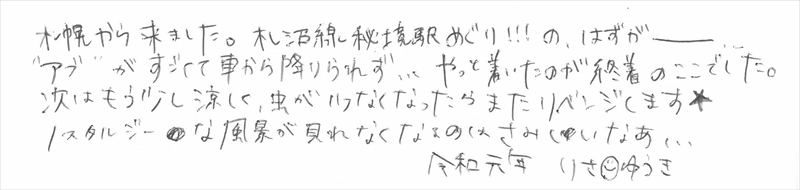 札幌から来ました。札沼線秘境駅めぐり!!!の、はずが――…
"アブ"がすごくて車から降りられず… やっと着いたのが終着のここでした。
次はもう少し涼しく、虫がいなくなったらまたリベンジします★
ノスタルジーな風景が見れなくなるのはさみしいなあ…
令和元年 りさ☺ゆうき